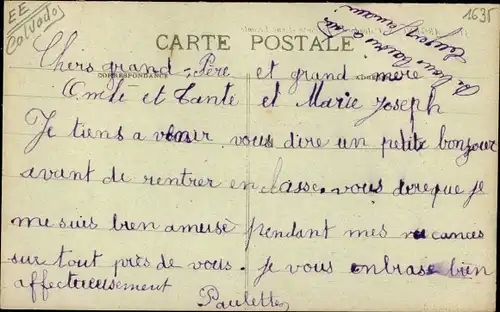 EE
Calvados
1635
CARTE POSTALE
CORRESPONDANCE
Chers grand-Père et grand mère
Oncle et Tante et Marie Joseph
Je tiens a venir vous dire un petit bonjour
avant de rentrer en classe. vous dire que je
me suis bien amusé pendant mes vacances
sur tout près de vous. je vous embrase bien
affectueusement
Paulette